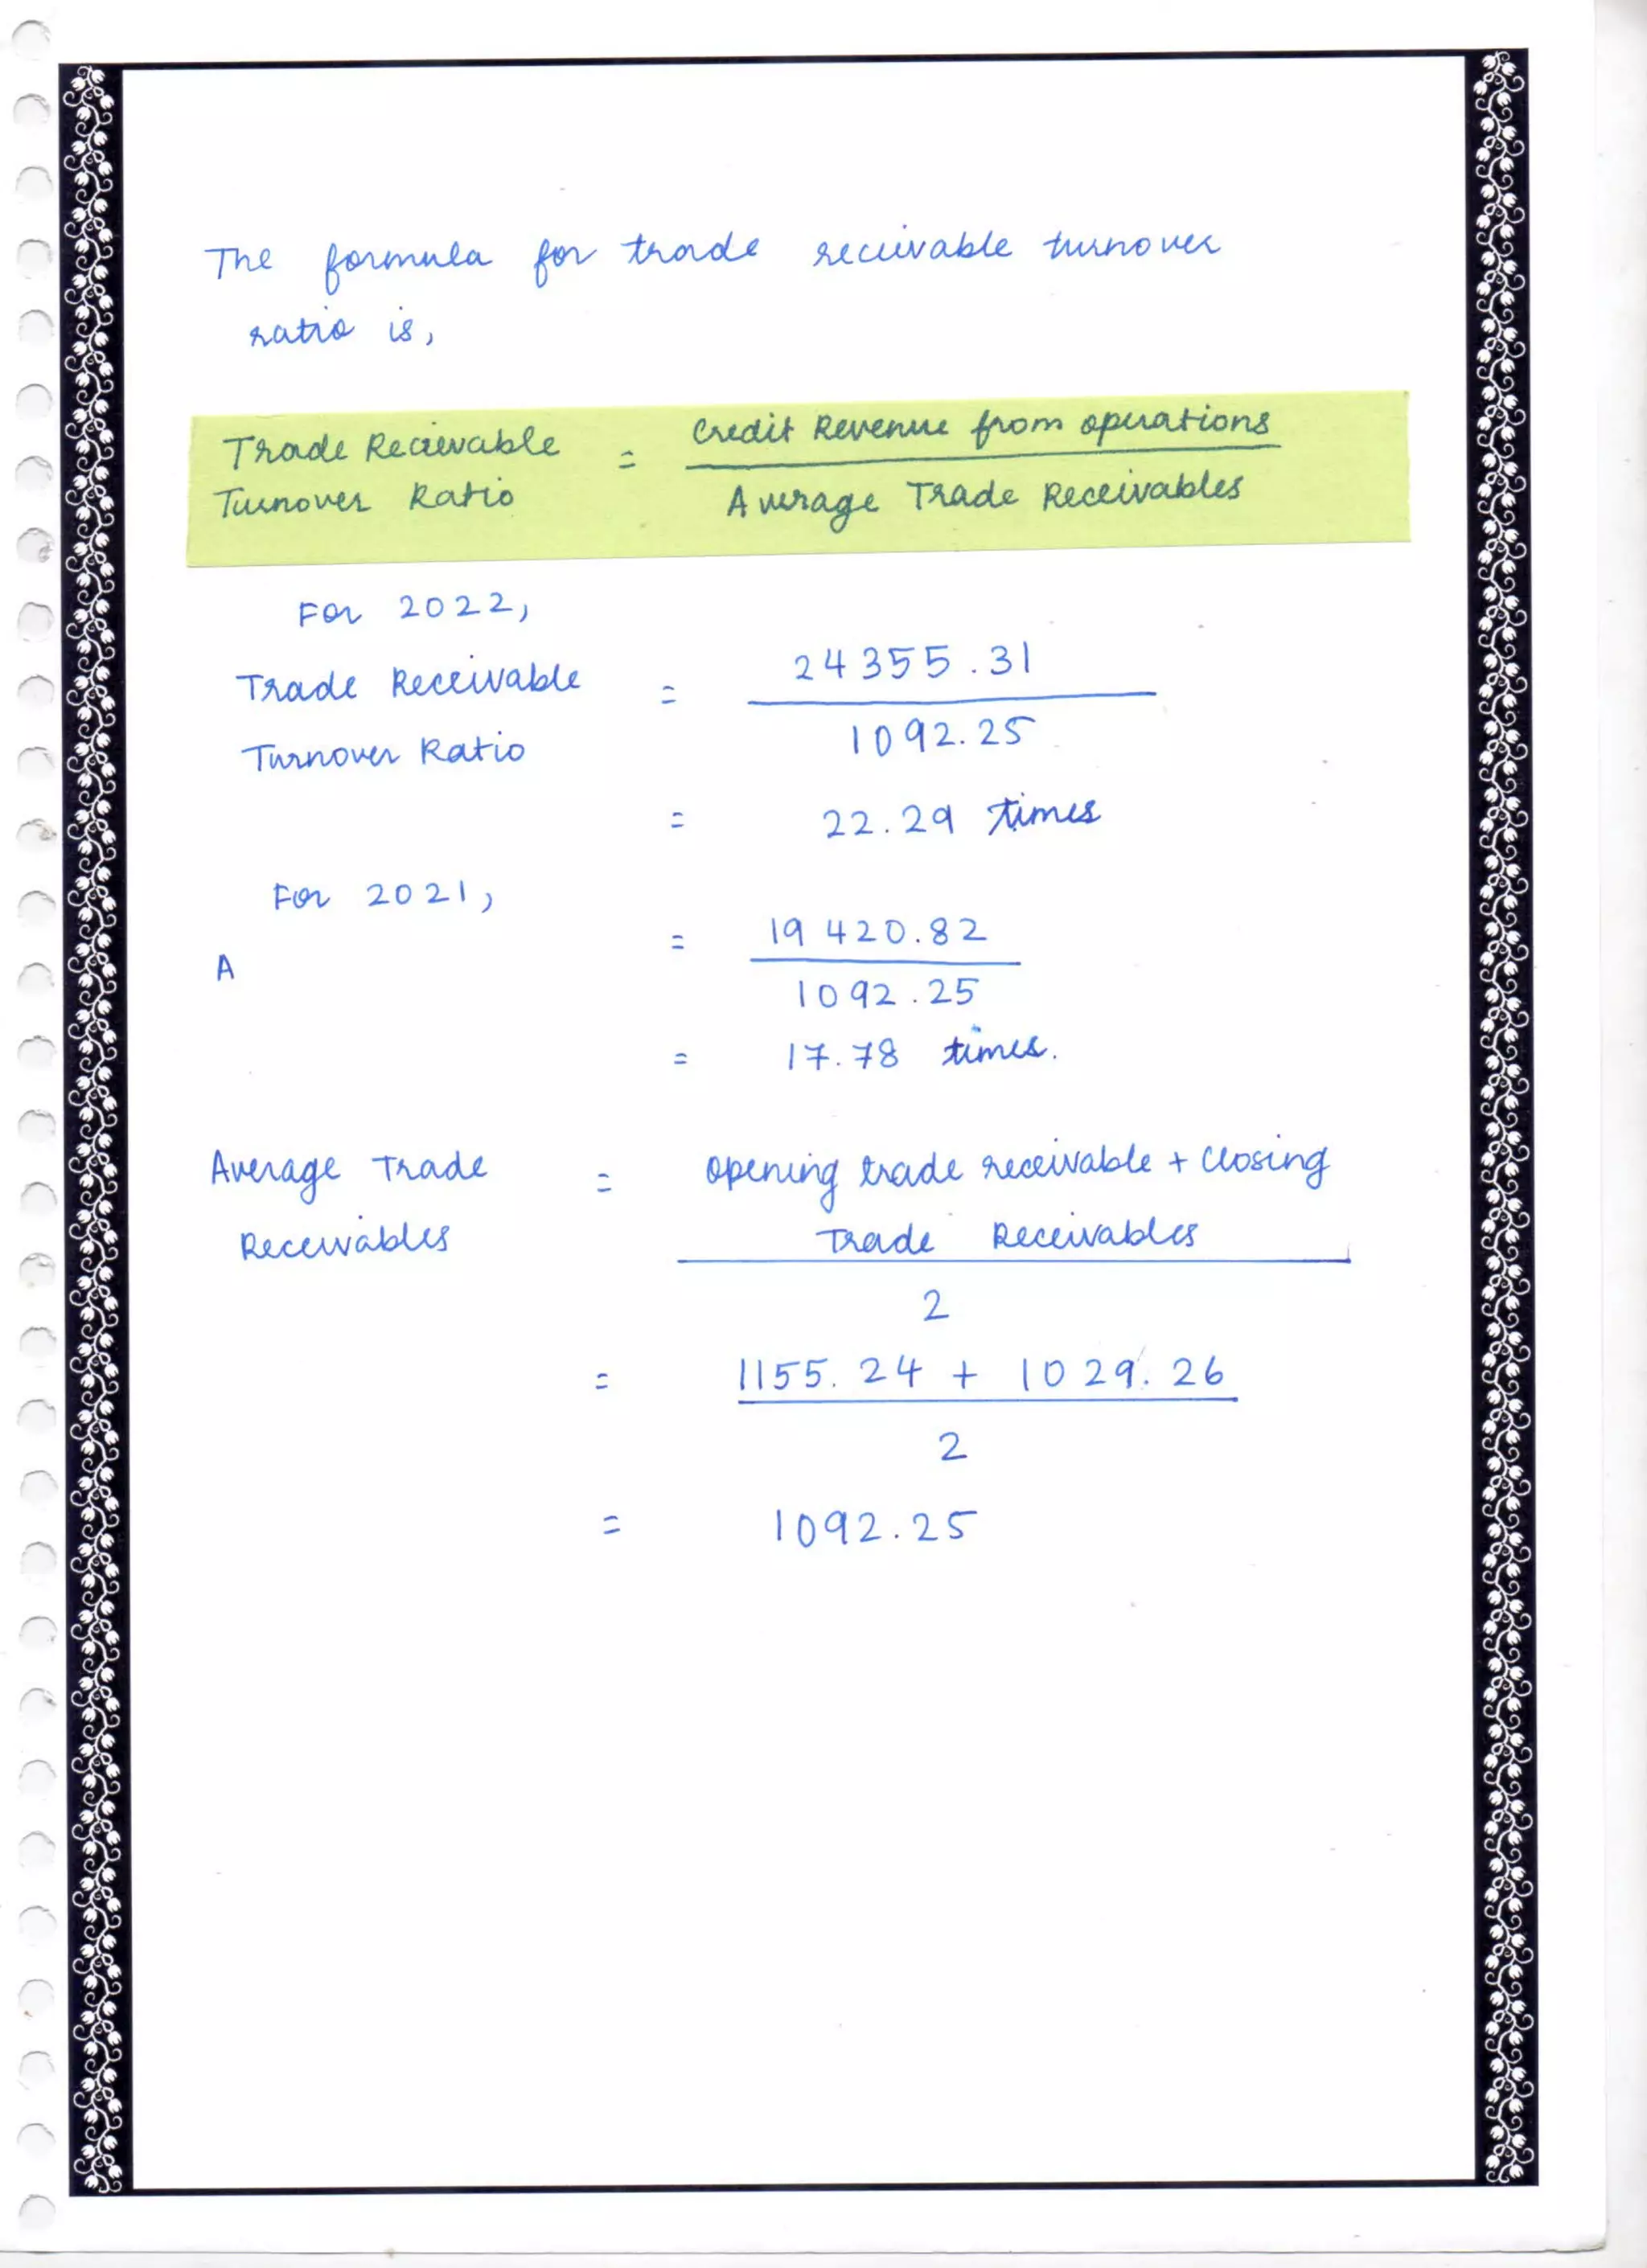 The formula for trade receivable turnover
ratio is,
Trade Receivable = Credit Revenue from operations
Turnover Ratio Average Trade Receivables
For 2022,
Trade Receivable = 24355.31
Turnover Ratio 1092.25
= 22.29 times
For 2021,
= 19420.82
A
1092.25
= 17.78 times.
Average Trade = opening trade receivable + closing
Receivables Trade Receivables
2
= 1155.24 + 1029.26
2
= 1092.25